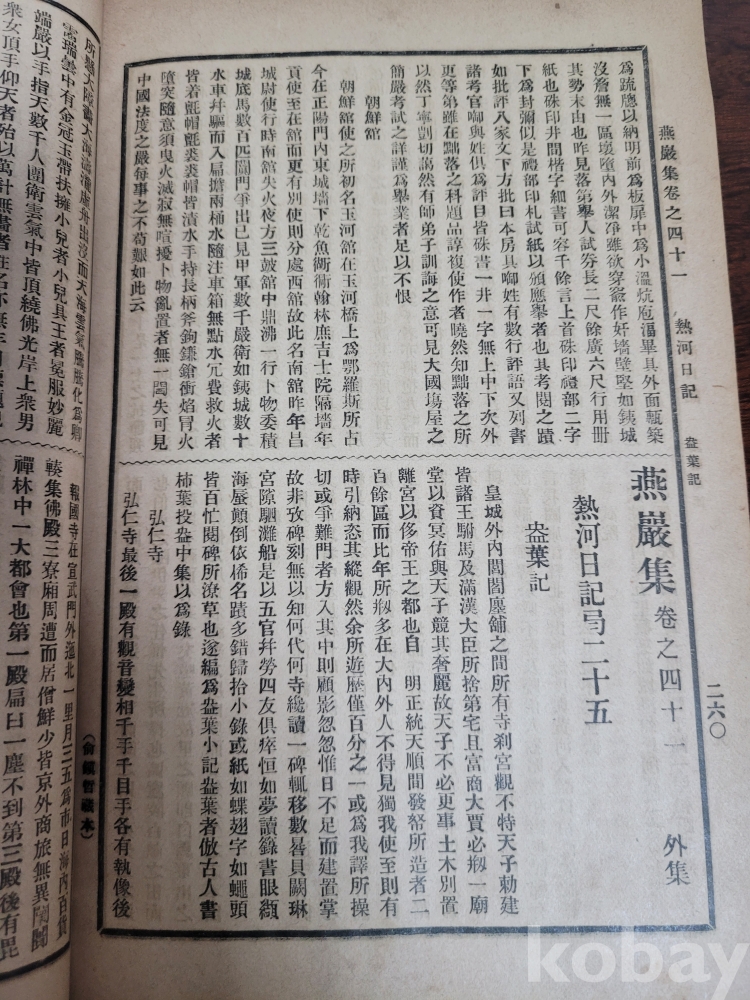 燕巖集卷之四十一 熱河日記 盎葉記
二六〇
外集
爲疏牕以納明前爲板屛中爲小溫炕庖湢畢具外面甎築
沒簷無一區壞墮內外潔淨雖欲穿窬作奸墻壁堅如鐵城
其勢末由也昨見落第擧人試券長二尺餘廣六尺行用冊
紙也硃印井間楷字細書可容千餘言上首硃印禮部二字
下爲封彌似是禮部印札試紙以頒應擧者也其考閱之蹟
如批評八家文下方批曰本房具啣姓有數行評語又列書
諸考官啣與姓俱爲評目皆硃書一井一字無上中下次外
更等第雖在黜落之科題品諄複使作者曉然知黜落之所
以然丁寧剴切藹然有師弟子訓誨之意可見大國塲屋之
簡嚴考試之詳謹爲擧業者足以不恨
朝鮮舘
朝鮮舘使之所初名玉河舘在玉河橋上爲鄂羅斯所占
今在正陽門內東城墻下乾魚衚衕翰林庶吉士院隔墻年
貢使至在舘而更有別使則分處西舘故此名南舘昨年昌
城尉使行時南舘失火夜方三鼓舘中鼎沸一行卜物委積
城底馬數百匹闖門爭出已見甲軍數千嚴衛如鐵城數十
水車幷驅而入扁擔兩桶水隨注車箱無點水冗費救火者
皆着氈帽氈裘裘帽皆漬水手持長柄斧鉤鎌鎗衝焰冒火
墮突隨意須臾火滅寂無喧擾卜物亂置者無一闆失可見
中國法度之嚴每事之不苟艱如此云
燕巖集 卷之四十一
熱河日記 二十五
盎葉記
皇城外內閭閻廛舖之間所有寺刹宮觀不特天子勅建
皆諸王駙馬及滿漢大臣所捨第宅且富商大賈必刱一廟
堂以資冥佑與天子競其奢麗故天子不必更事土木別置
離宮以侈帝王之都也自 明正統天順間發帑所造者二
百餘區而比年所刱多在大內外人不得見獨我使至則有
時引納恣其縱觀然余所遊歷僅百分之一或爲我譯所操
切或爭難門者方入其中則顧影忽忽惟日不足而建置掌
故非攷碑刻無以知何代何寺纔讀一碑輒移數晷貝闕琳
宮隙駟灘船是以五官幷勞四友俱瘁恒如夢讀籙書眼纈
海蜃顚倒依俙名蹟多錯歸拾小錄或紙如蝶翅字如蠅頭
皆百忙閱碑所潦草也遂編爲盎葉小記盎葉者倣古人書
柿葉投盎中集以爲錄
弘仁寺
弘仁寺最後一殿有觀音變相千手千目手各有執像後
雲瑞雲中有金冠玉帶扶擁小兒者小兒具王者冕服妙麗
端嚴以手指天數千人圍衛雲氣中皆頂繞佛光岸上衆男
衆女頂手仰天者殆以萬計無畵者姓名
報國寺在宣武門外迤北一里月三五爲市日海內百貨
輳集佛殿三寮廂周遭而居僧鮮少皆京外商旅無異闤闠
禪林中一大都會也第一殿扁曰一塵不到第三殿後有毘
kobay